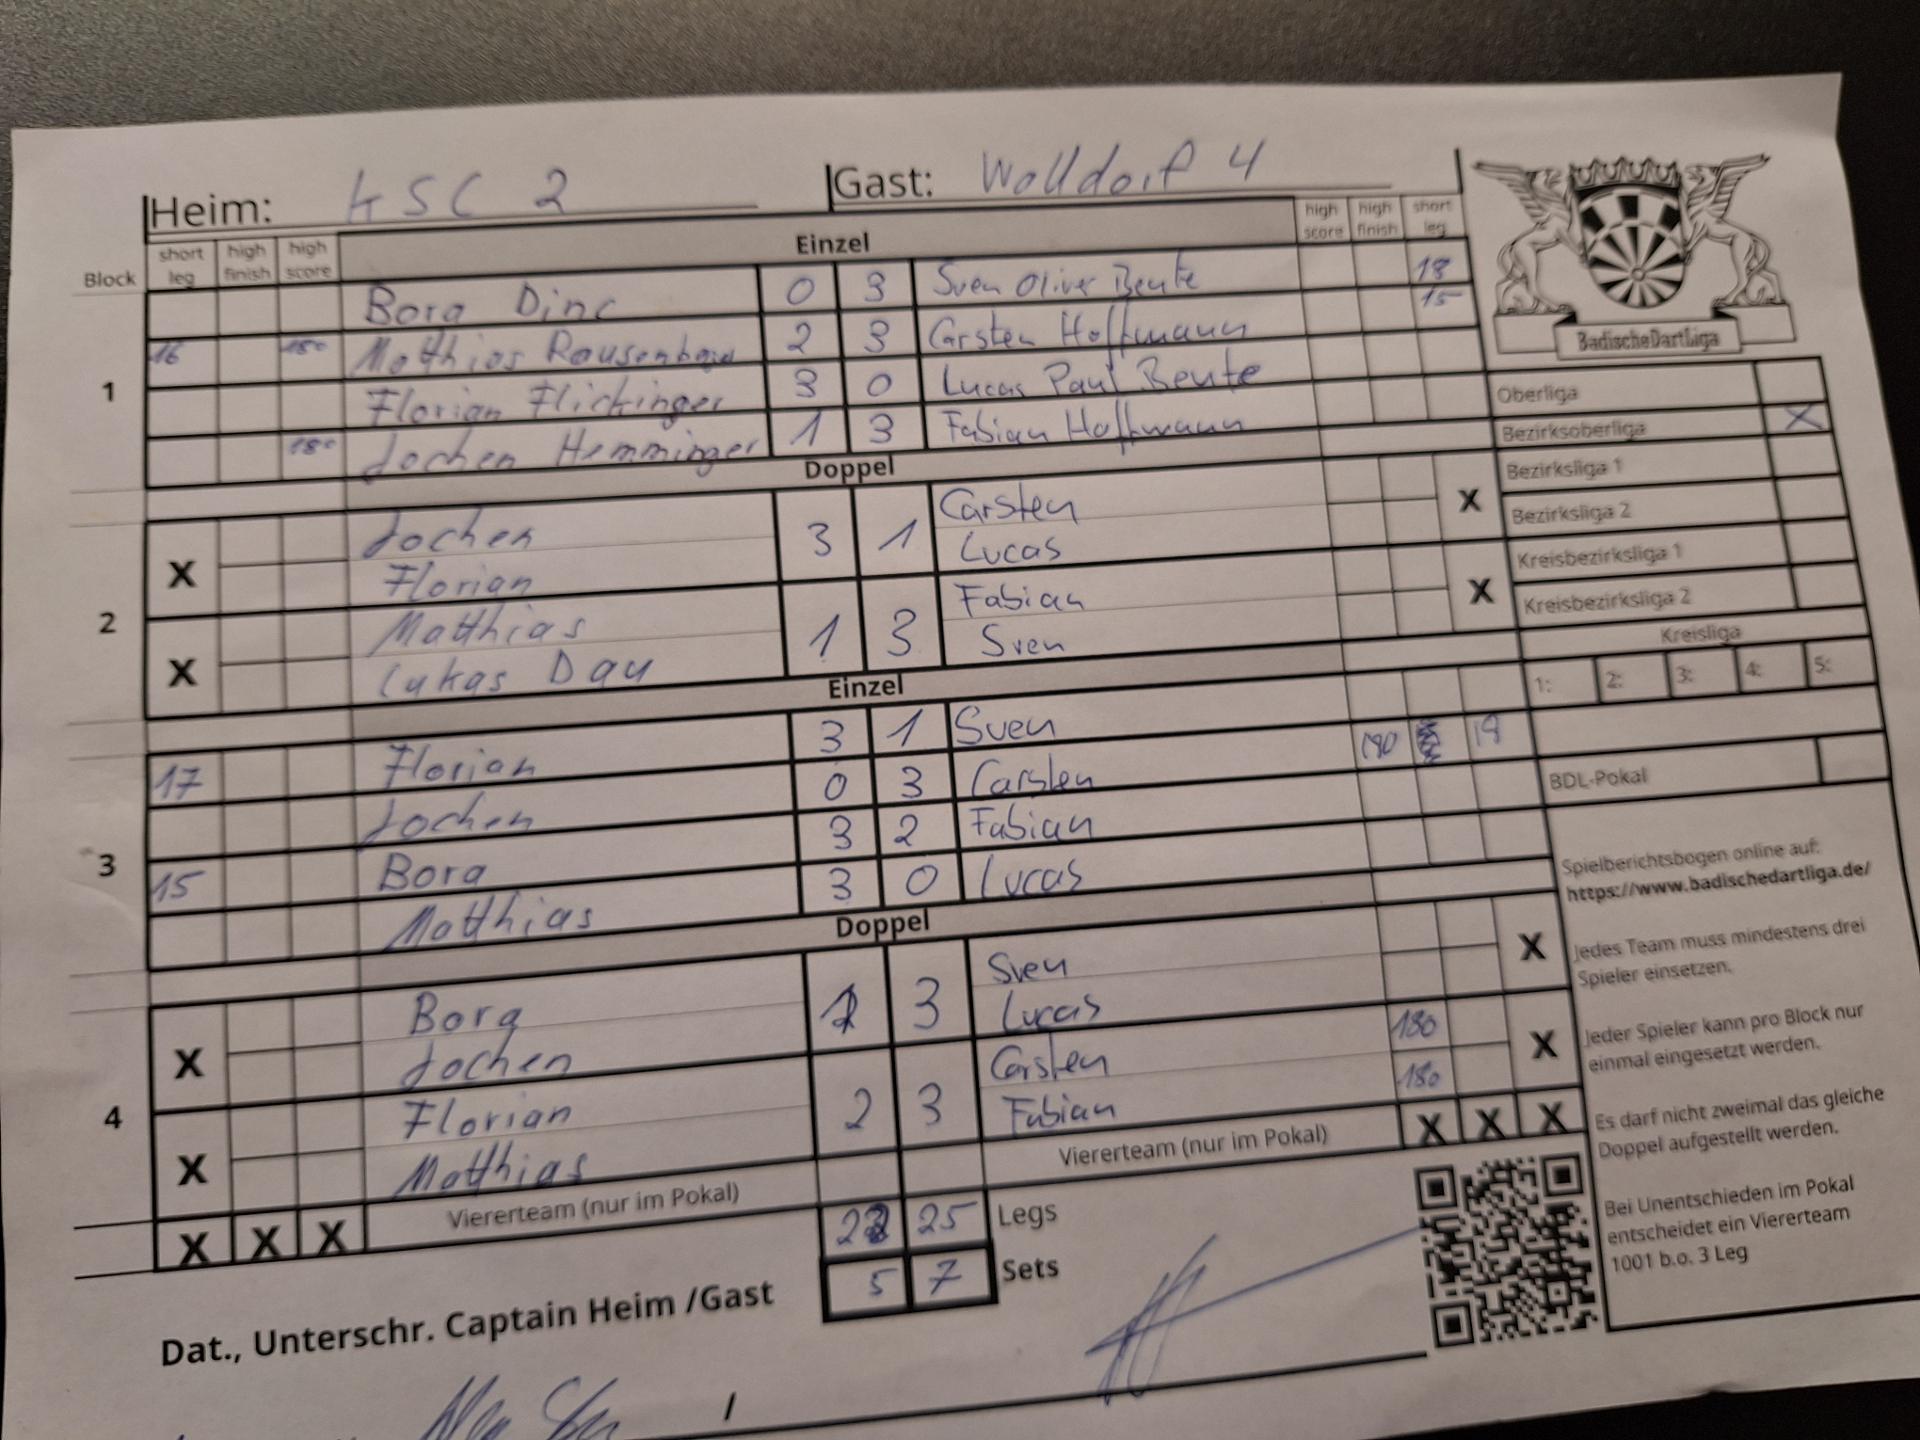 Heim: KSC 2 Gast: Walldorf 4
Block short leg high finish high score Einzel high score high finish short leg
Bora Dinc 0 3 Sven Oliver Beute 18
16 180 Matthias 2 3 Carsten Hoffmann 15
1 Florian Flickinger 3 0 Lucas Paul Beute
180 Jochen Hemminger 1 3 Fabian Hoffmann
Doppel
Jochen 3 1 Carsten X
X Florian Lucas
2 Matthias 1 3 Fabian X
X Lukas Dau Sven
Einzel
17 Florian 3 1 Sven
Jochen 0 3 Carsten 180 19
3 15 Bora 3 2 Fabian
Matthias 3 0 Lucas
Doppel
Bora 3 Sven X
X Jochen Lucas
4 Florian 2 3 Carsten 180 X
X Matthias Fabian 180
X X X Viererteam (nur im Pokal) Viererteam (nur im Pokal) X X X
25 Legs
5 7 Sets
Dat., Unterschr. Captain Heim /Gast
/
BadischeDartLiga
Oberliga
Bezirksoberliga X
Bezirksliga 1
Bezirksliga 2
Kreisbezirksliga 1
Kreisbezirksliga 2
Kreisliga
1: 2: 3: 4: 5:
BDL-Pokal
Spielberichtsbogen online auf:
https://www.badischedartliga.de/
Jedes Team muss mindestens drei
Spieler einsetzen.
Jeder Spieler kann pro Block nur
einmal eingesetzt werden.
Es darf nicht zweimal das gleiche
Doppel aufgestellt werden.
Bei Unentschieden im Pokal
entscheidet ein Viererteam
1001 b.o. 3 Leg